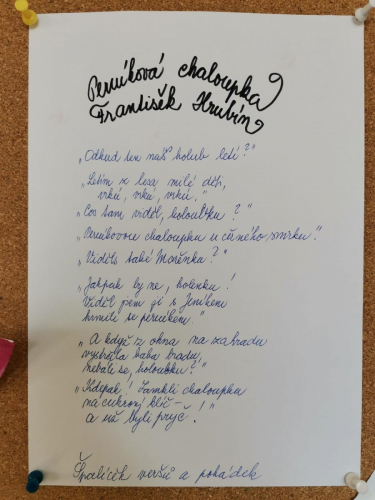 Perníková chaloupka
František Hrubín
„Odkud ten náš holub letí?"
„Letím z lesa milé děti,
vrkú, vrkú, vrkú."
„Cos tam viděl, holoubku?"
„Perníkovou chaloupku u černého smrku."
„Viděls také Mařenku?"
„Jakpak by ne, holenku!
Viděl jsem ji s Jeníkem
krmili se perníkem."
„A když z okna na zahradu
vystrčila baba bradu,
nebáli se, holoubku?"
„Kdepak! Zamkli chaloupku
na cukrový klíč –
a už byli pryč!"
Špalíček veršů a pohádek